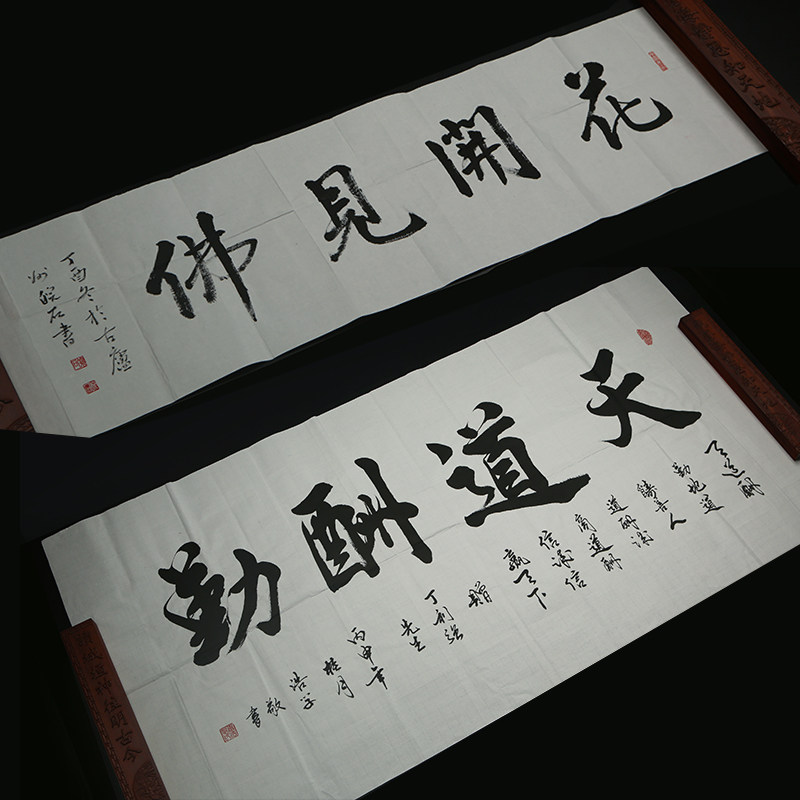 花開見佛
丁酉冬於古廬
皖石書
天道酬勤
天道酬
勤地道
酬善人
道酬诚
商道酬
信诚信
赢天下
赠
丁利强
先生
丙申年
桂月
浩学
敬
書